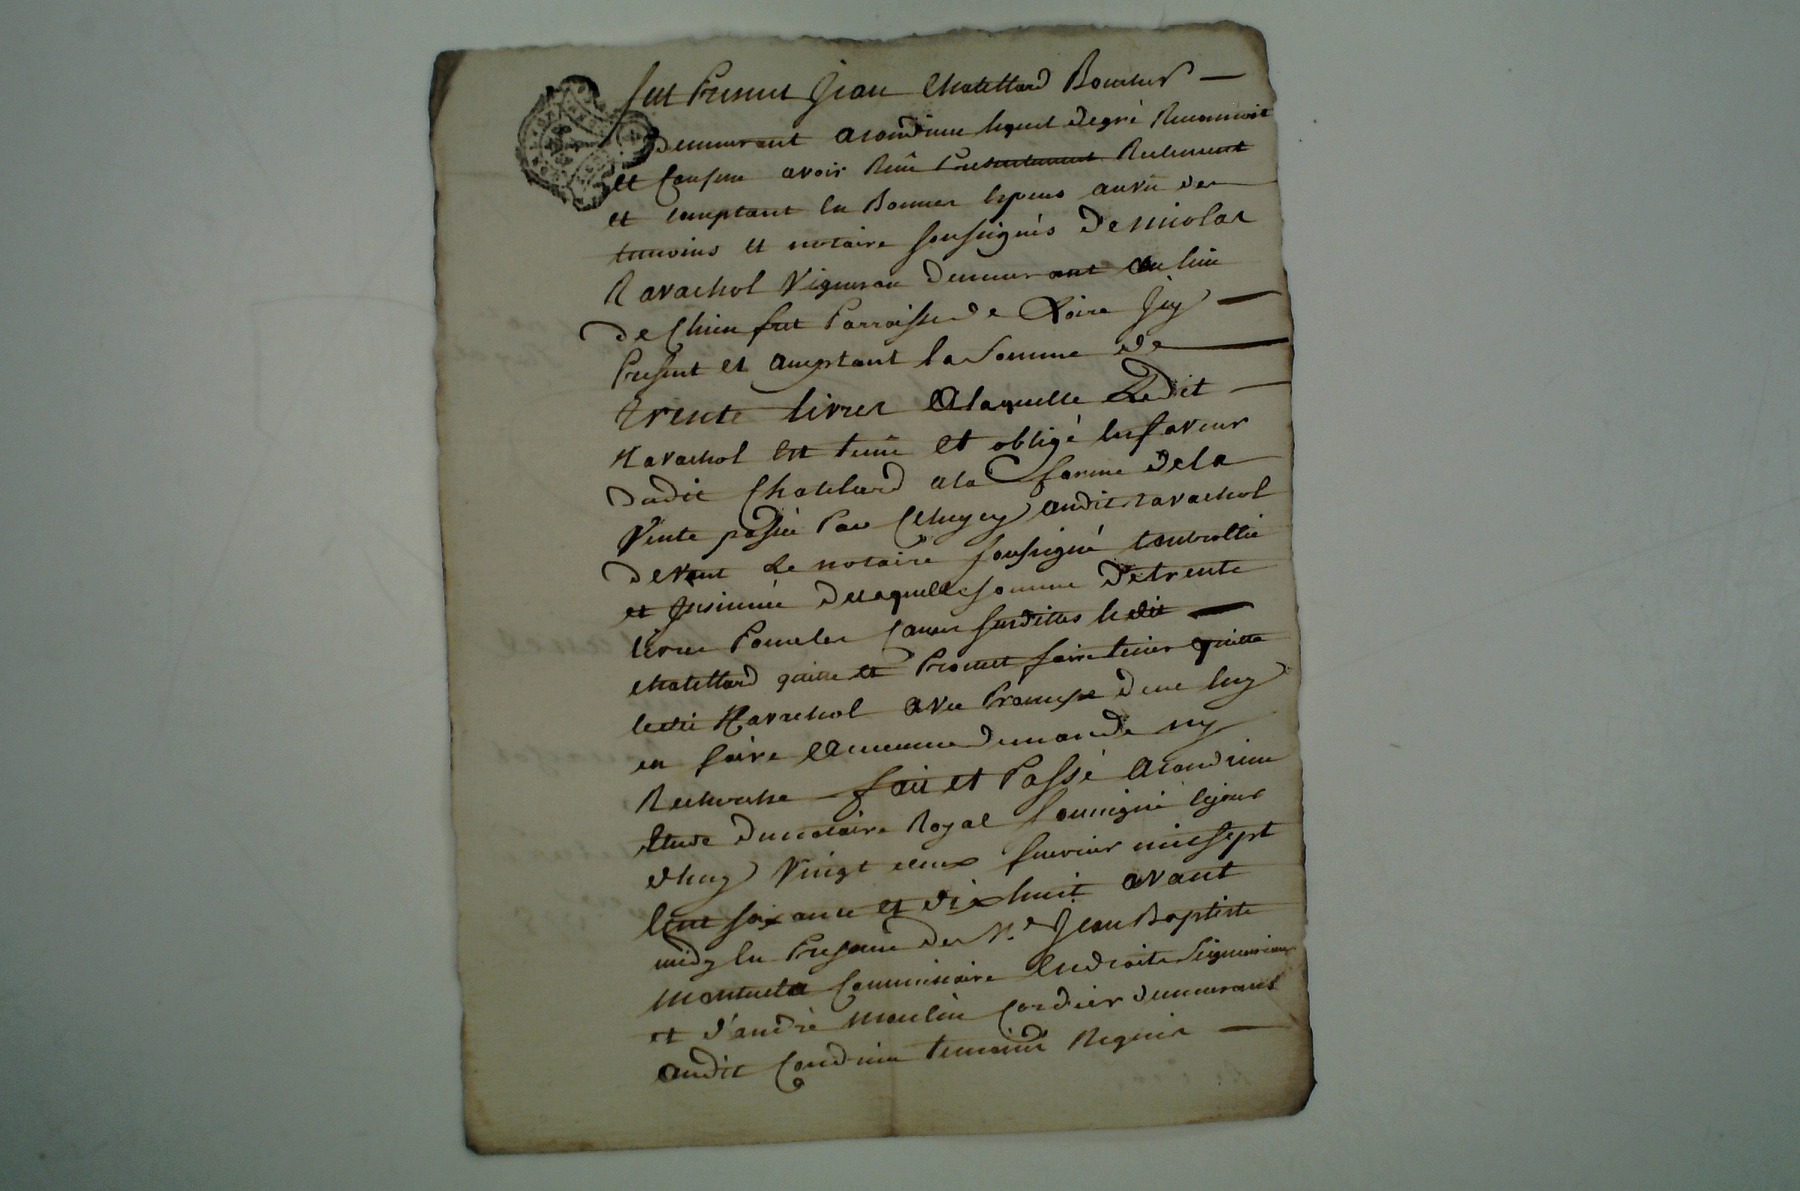 fut Present Jean Chatellard Boucher —
demeurant a condrieu lequel degré Reconnoit
et Confesse avoir Reçu Presentement Reelement
et comptant en Bonnes especes auvû des
temoins et notaire soussignés De nicolas
Ravachol Vigneron demeurant au lieu
de Chien Parroisse de Loire Jcy —
Present et acceptant la Somme de —
trente livres a laquelle Ledit —
Ravachol est tenu et obligé en faveur
dudit Chatelard a la forme de la
Vente passée Par audit Ravachol
devant Le notaire soussigné Controllée
et Jnsinuée de laquelle somme de trente
livres Pour les causes susdittes ledit —
chatellard quitte et Promet faire tenir quitte
ledit Ravachol avec Promesse de ne luy
en faire aucunne demande ny
Recherche fait et Passé a condrieu
Etude du notaire Royal soussigné lejour
dhuy Vingt deux fevrier mil sept
Cent soixante et dix huit avant
midy En Presence de Sr. Jean Baptiste
Commissaire En droits Seigneuriaux
et d'andré moulin Cordier demeurants
audit Condrieu temoins Requis —